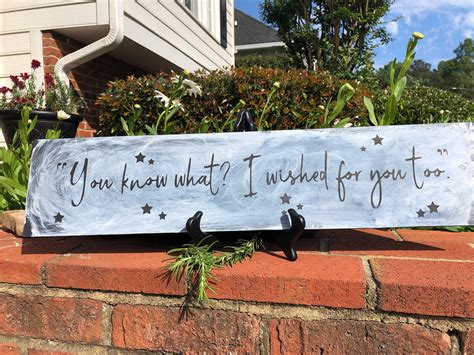 "You know what? I wished for you too."